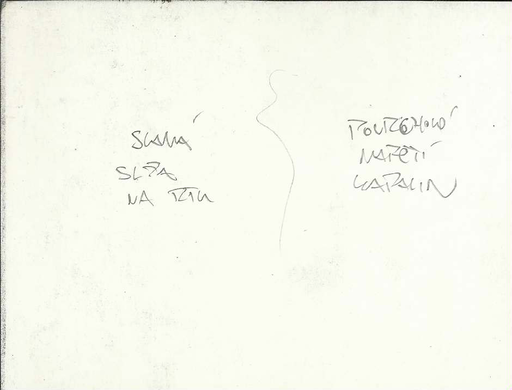 SLANÁ
SLZA
NA RTU
POVRCHOVÉ
NAPĚTÍ
KAPALIN